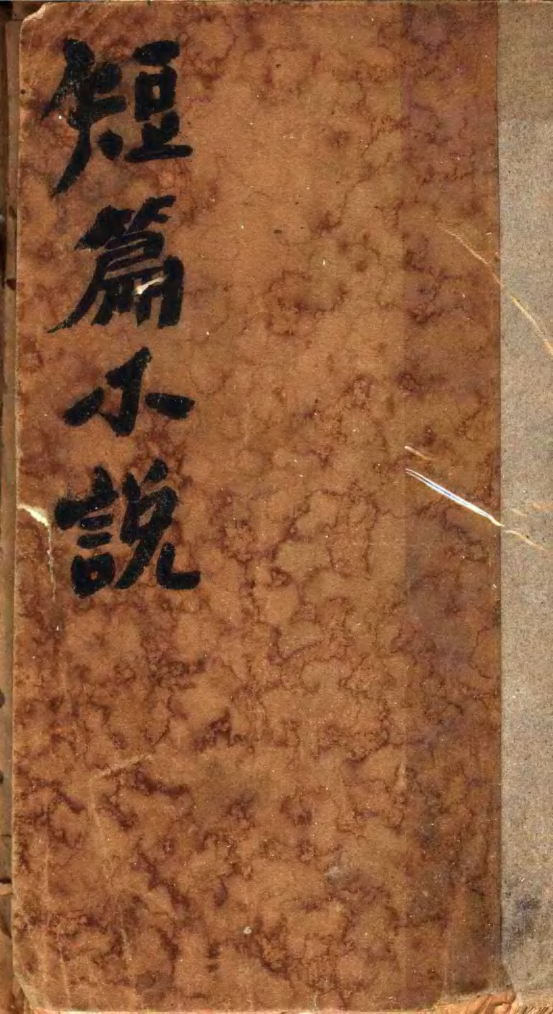 短篇小說